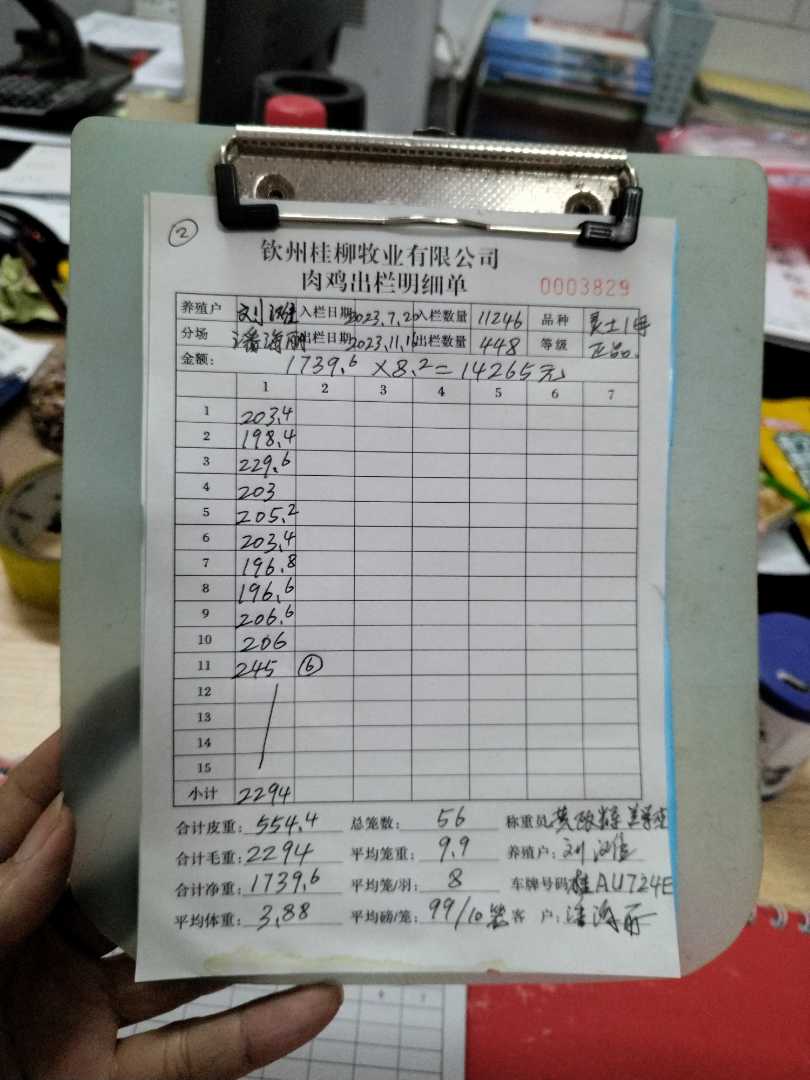 ②
钦州桂柳牧业有限公司
肉鸡出栏明细单 0003829
养殖户 刘 入栏日期 2023.7.20 入栏数量 11246 品种 灵土1号
分场 潘海丽 出栏日期 2023.11. 出栏数量 448 等级 正品.
金额: 1739.6 ×8.2=14265元
1 2 3 4 5 6 7
1 203.4
2 198.4
3 229.6
4 203
5 205.2
6 203.4
7 196.8
8 196.6
9 206.6
10 206
11 245 ⑥
12
13
14
15
小计 2294
合计皮重: 554.4 总笼数: 56 称重员 黄
合计毛重: 2294 平均笼重: 9.9 养殖户: 刘
合计净重: 1739.6 平均笼/羽: 8 车牌号码 桂AU724E
平均体重: 3.88 平均磅/笼: 99/10笼 客 户: 潘海丽